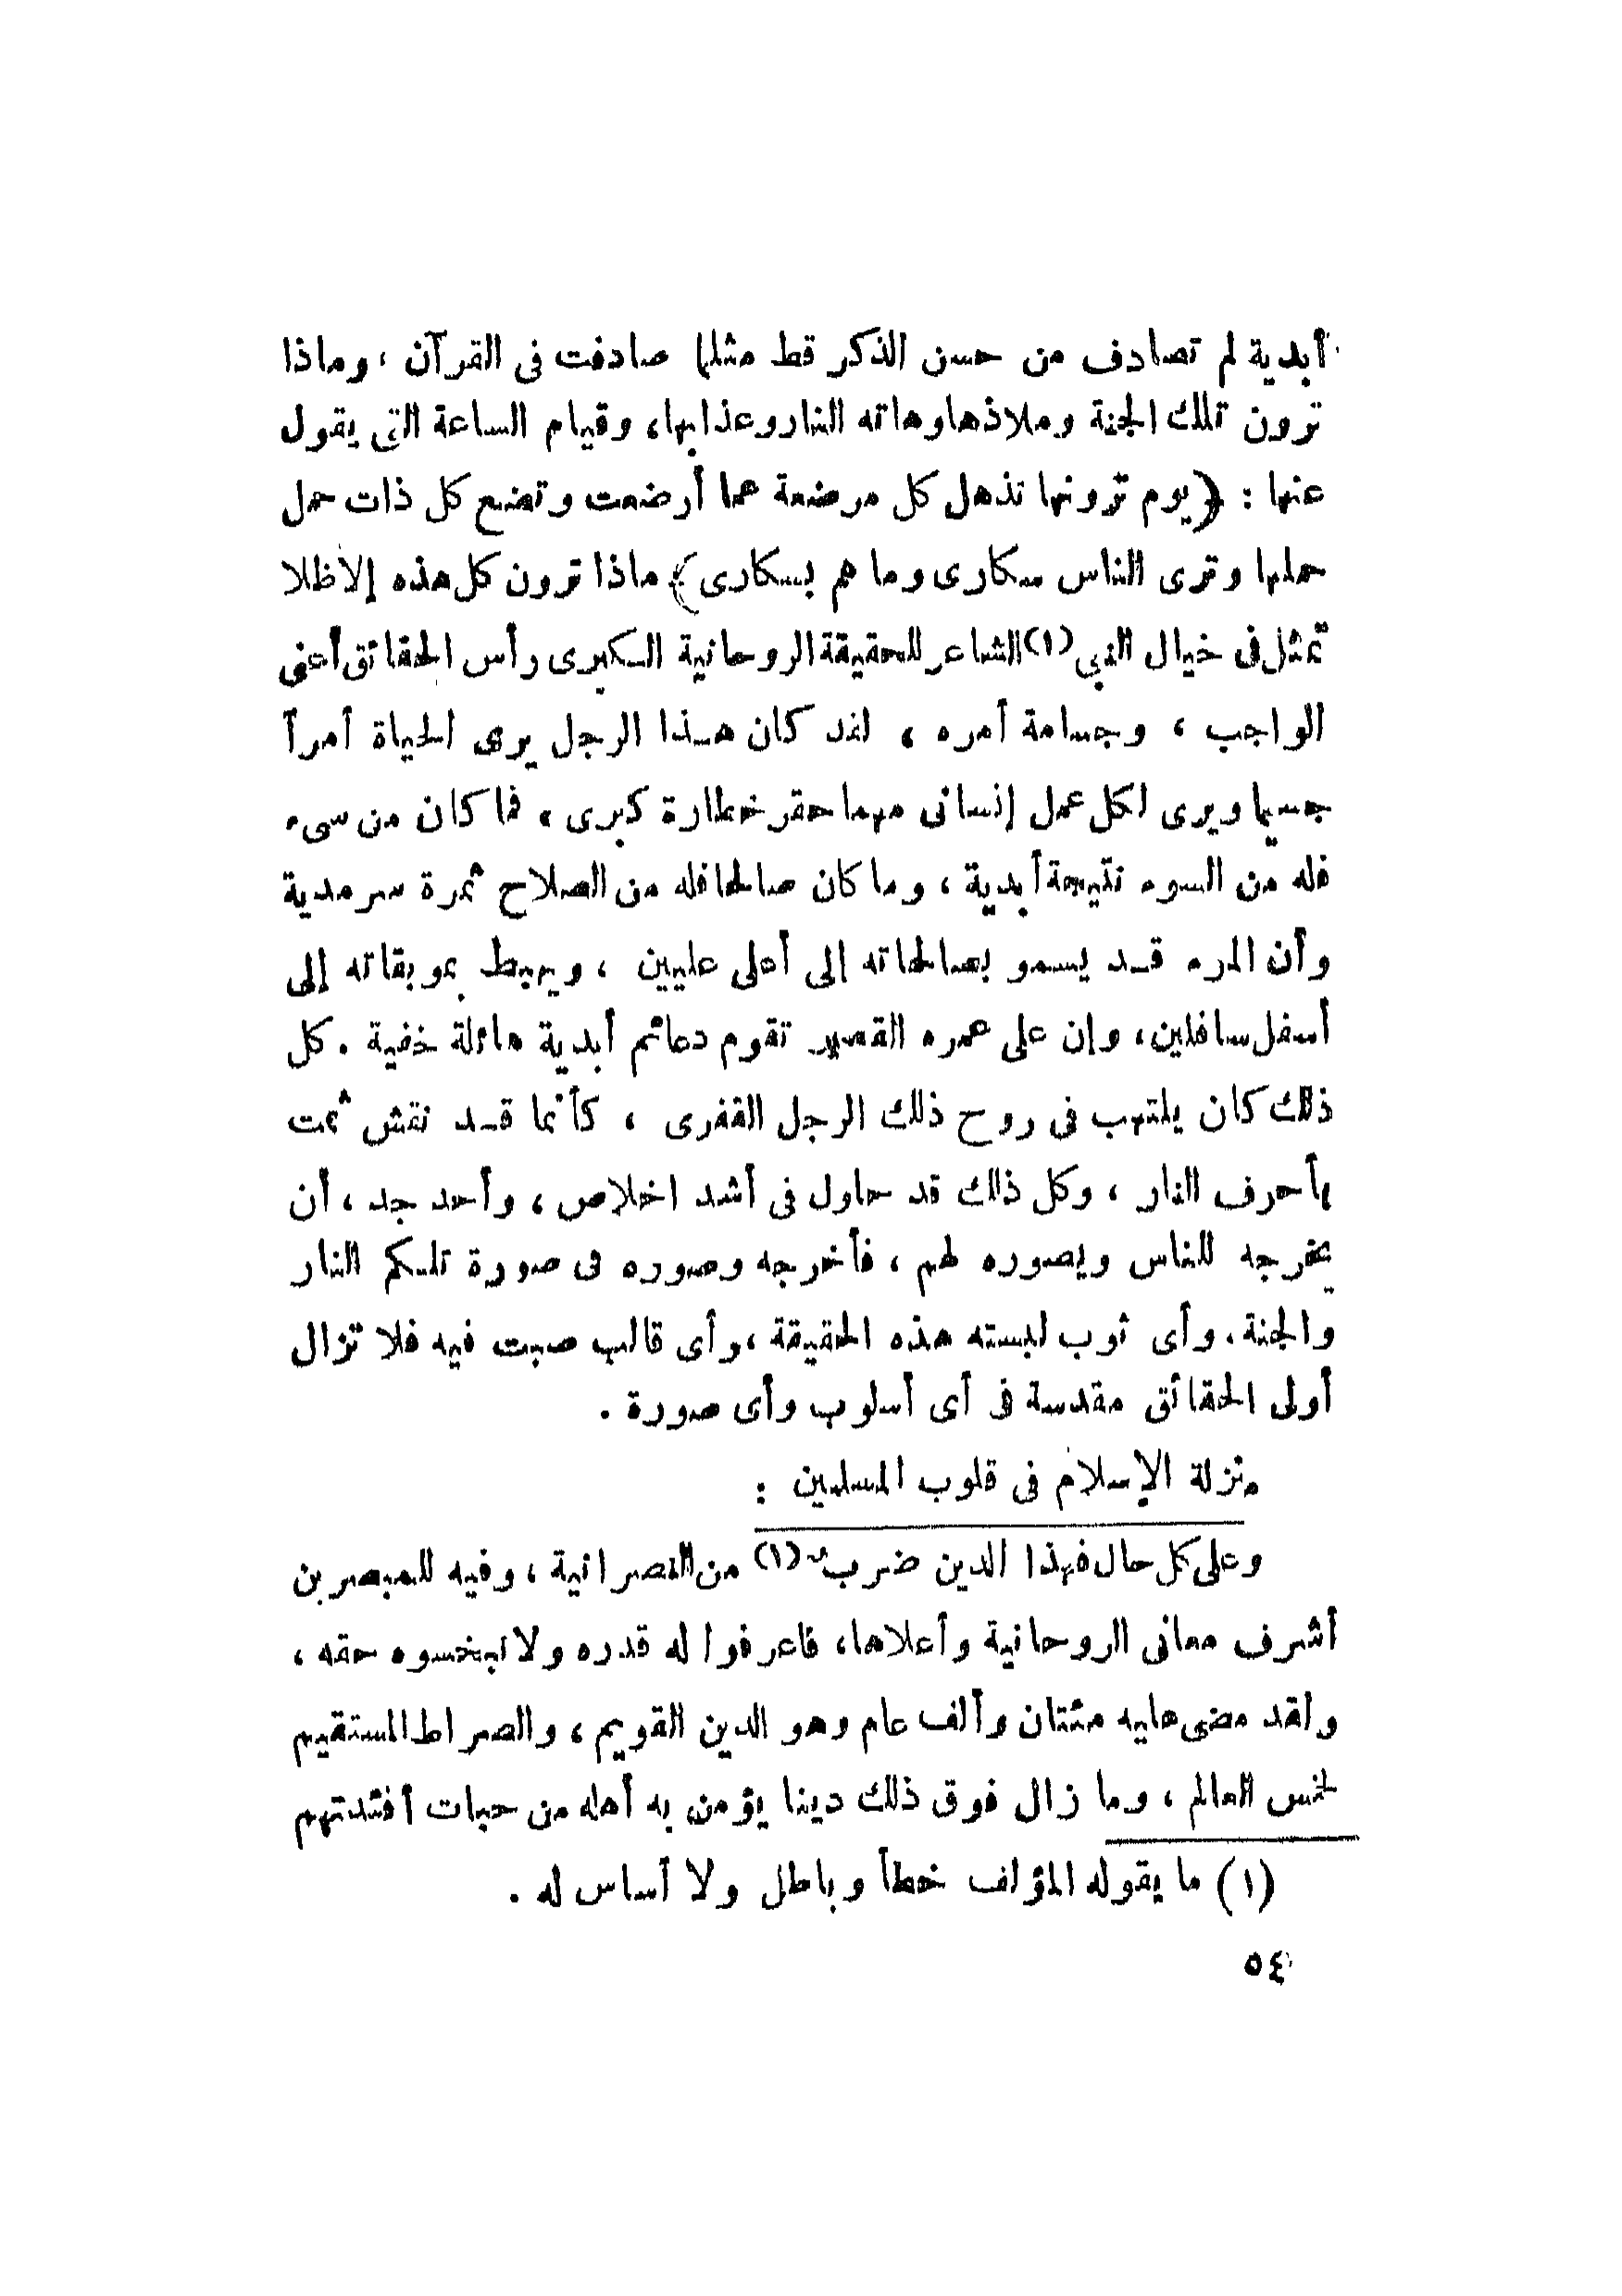 أبدية لم تصادف من حسن الذكر قط مثلما صادفت فى القرآن ، وماذا
ترون تلك الجنة وملاذها وهاته النار وعذابها، وقيام الساعة التى يقول
عنها : ﴿ يوم ترونها تذهل كل مرضعة عما أرضعت وتضع كل ذات حمل
حملها وترى الناس سكارى وما هم بسكارى ﴾ ماذا ترون كل هذه إلا ظلا
تمثل فى خيال النبى (١) الشاعر للحقيقة الروحانية الكبرى رأس الحقائق أعنى
الواجب ، وجسامة أمره ، لقد كان هذا الرجل يرى الحياة أمراً
جسيما ويرى لكل عمل إنسانى مهما حقر خطارة كبرى ، فما كان من سىء
فله من السوء نتيجة أبدية ، وما كان صالحا فله من الصلاح ثمرة سرمدية
وأن المرء قد يسمو بصالحاته إلى أعلى عليين ، ويهبط بموبقاته إلى
أسفل سافلين ، وإن على عمره القصير تقوم دعائم أبدية هائلة خفية . كل
ذلك كان يلتهب فى روح ذلك الرجل القفرى ، كأنما قد نقش ثمت
بأحرف النار ، وكل ذلك قد حاول فى أشد اخلاص ، وأحد جد ، أن
يخرجه للناس ويصوره لهم ، فأخرجه وصوره فى صورة تلكم النار
والجنة . وأى ثوب لبسته هذه الحقيقة ، وأى قالب صبت فيه فلا تزال
أولى الحقائق مقدسة فى أى أسلوب وأى صورة .
منزلة الإسلام فى قلوب المسلمين :
وعلى كل حال فهذا الدين ضرب (١) من النصرانية ، وفيه للمبصرين
أشرف معانى الروحانية وأعلاها، فاعرفوا له قدره ولا تبخسوه حقه ،
ولقد مضى عليه مئتان وألف عام وهو الدين القويم ، والصراط المستقيم
لخمس العالم ، وما زال فوق ذلك دينا يؤمن به أهله من حبات أفئدتهم
(١) ما يقوله المؤلف خطأ وباطل ولا أساس له .
٥٤